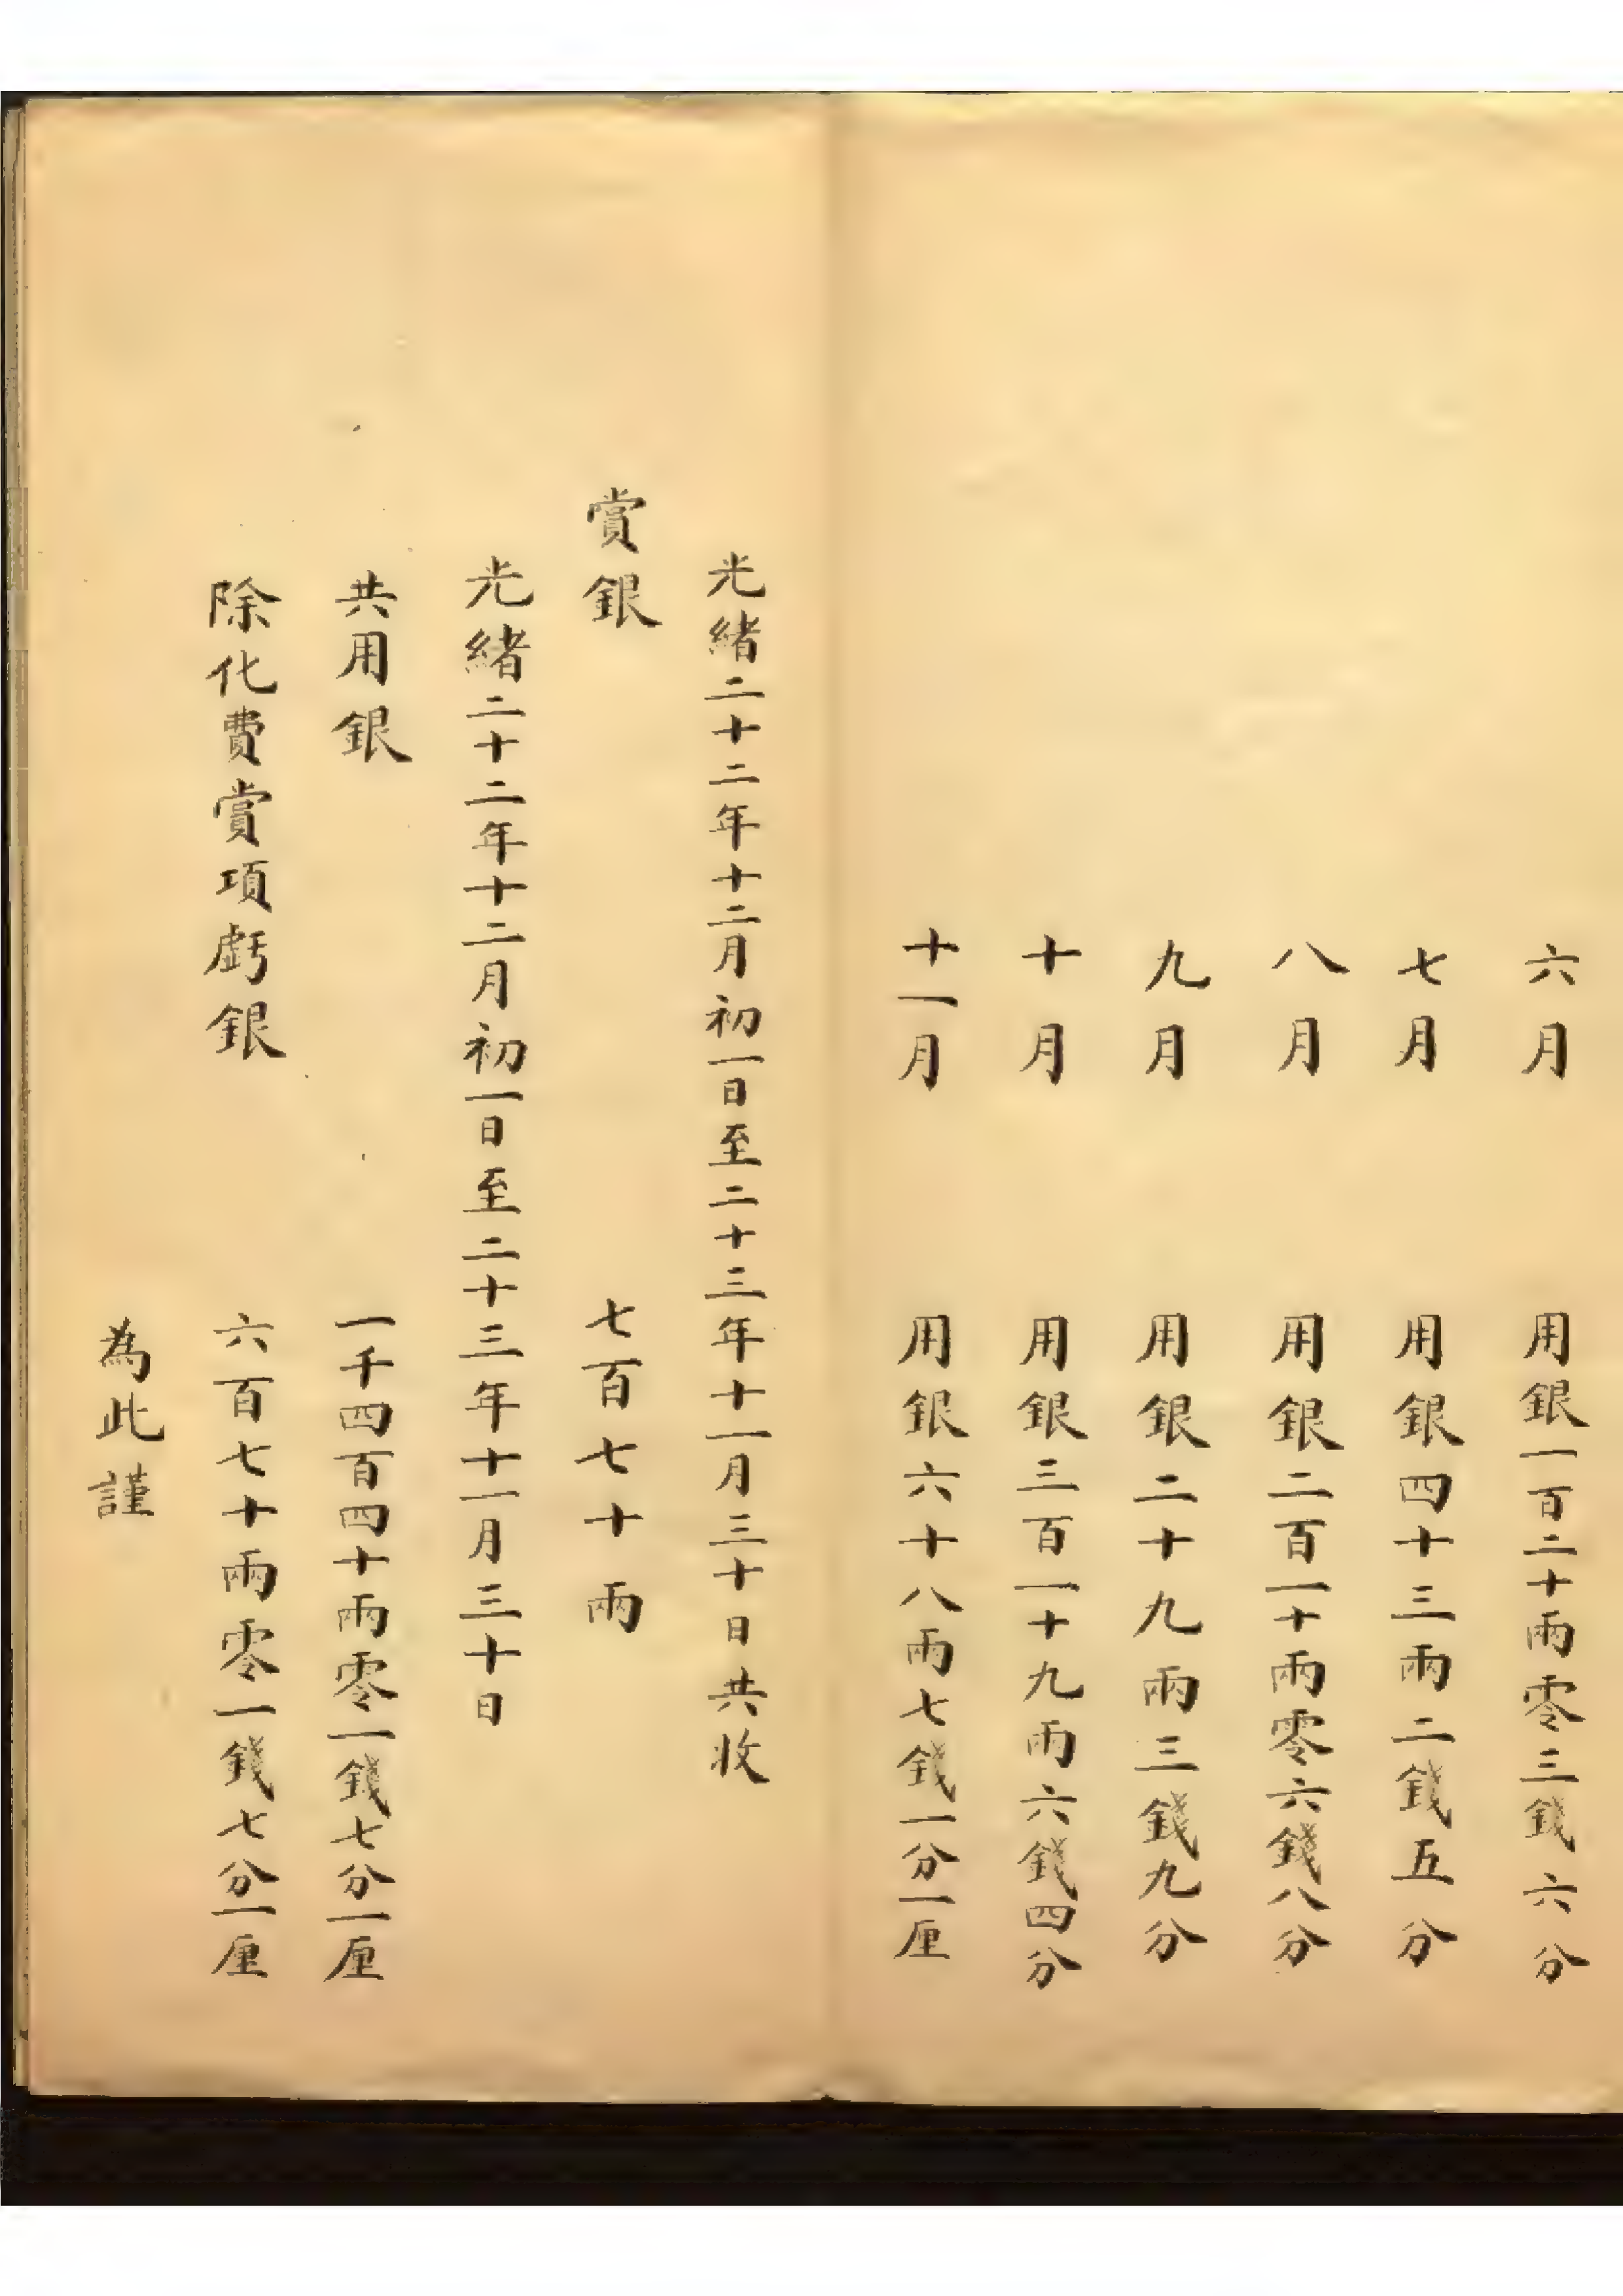 六月 用銀一百二十兩零三錢六分
七月 用銀四十三兩二錢五分
八月 用銀二百一十兩零六錢八分
九月 用銀二十九兩三錢九分
十月 用銀三百一十九兩六錢四分
十一月 用銀六十八兩七錢一分一厘
光緒二十二年十二月初一日至二十三年十一月三十日共收
賞銀 七百七十兩
光緒二十二年十二月初一日至二十三年十一月三十日
共用銀 一千四百四十兩零一錢七分一厘
除化費賞項虧銀 六百七十兩零一錢七分一厘
為此謹